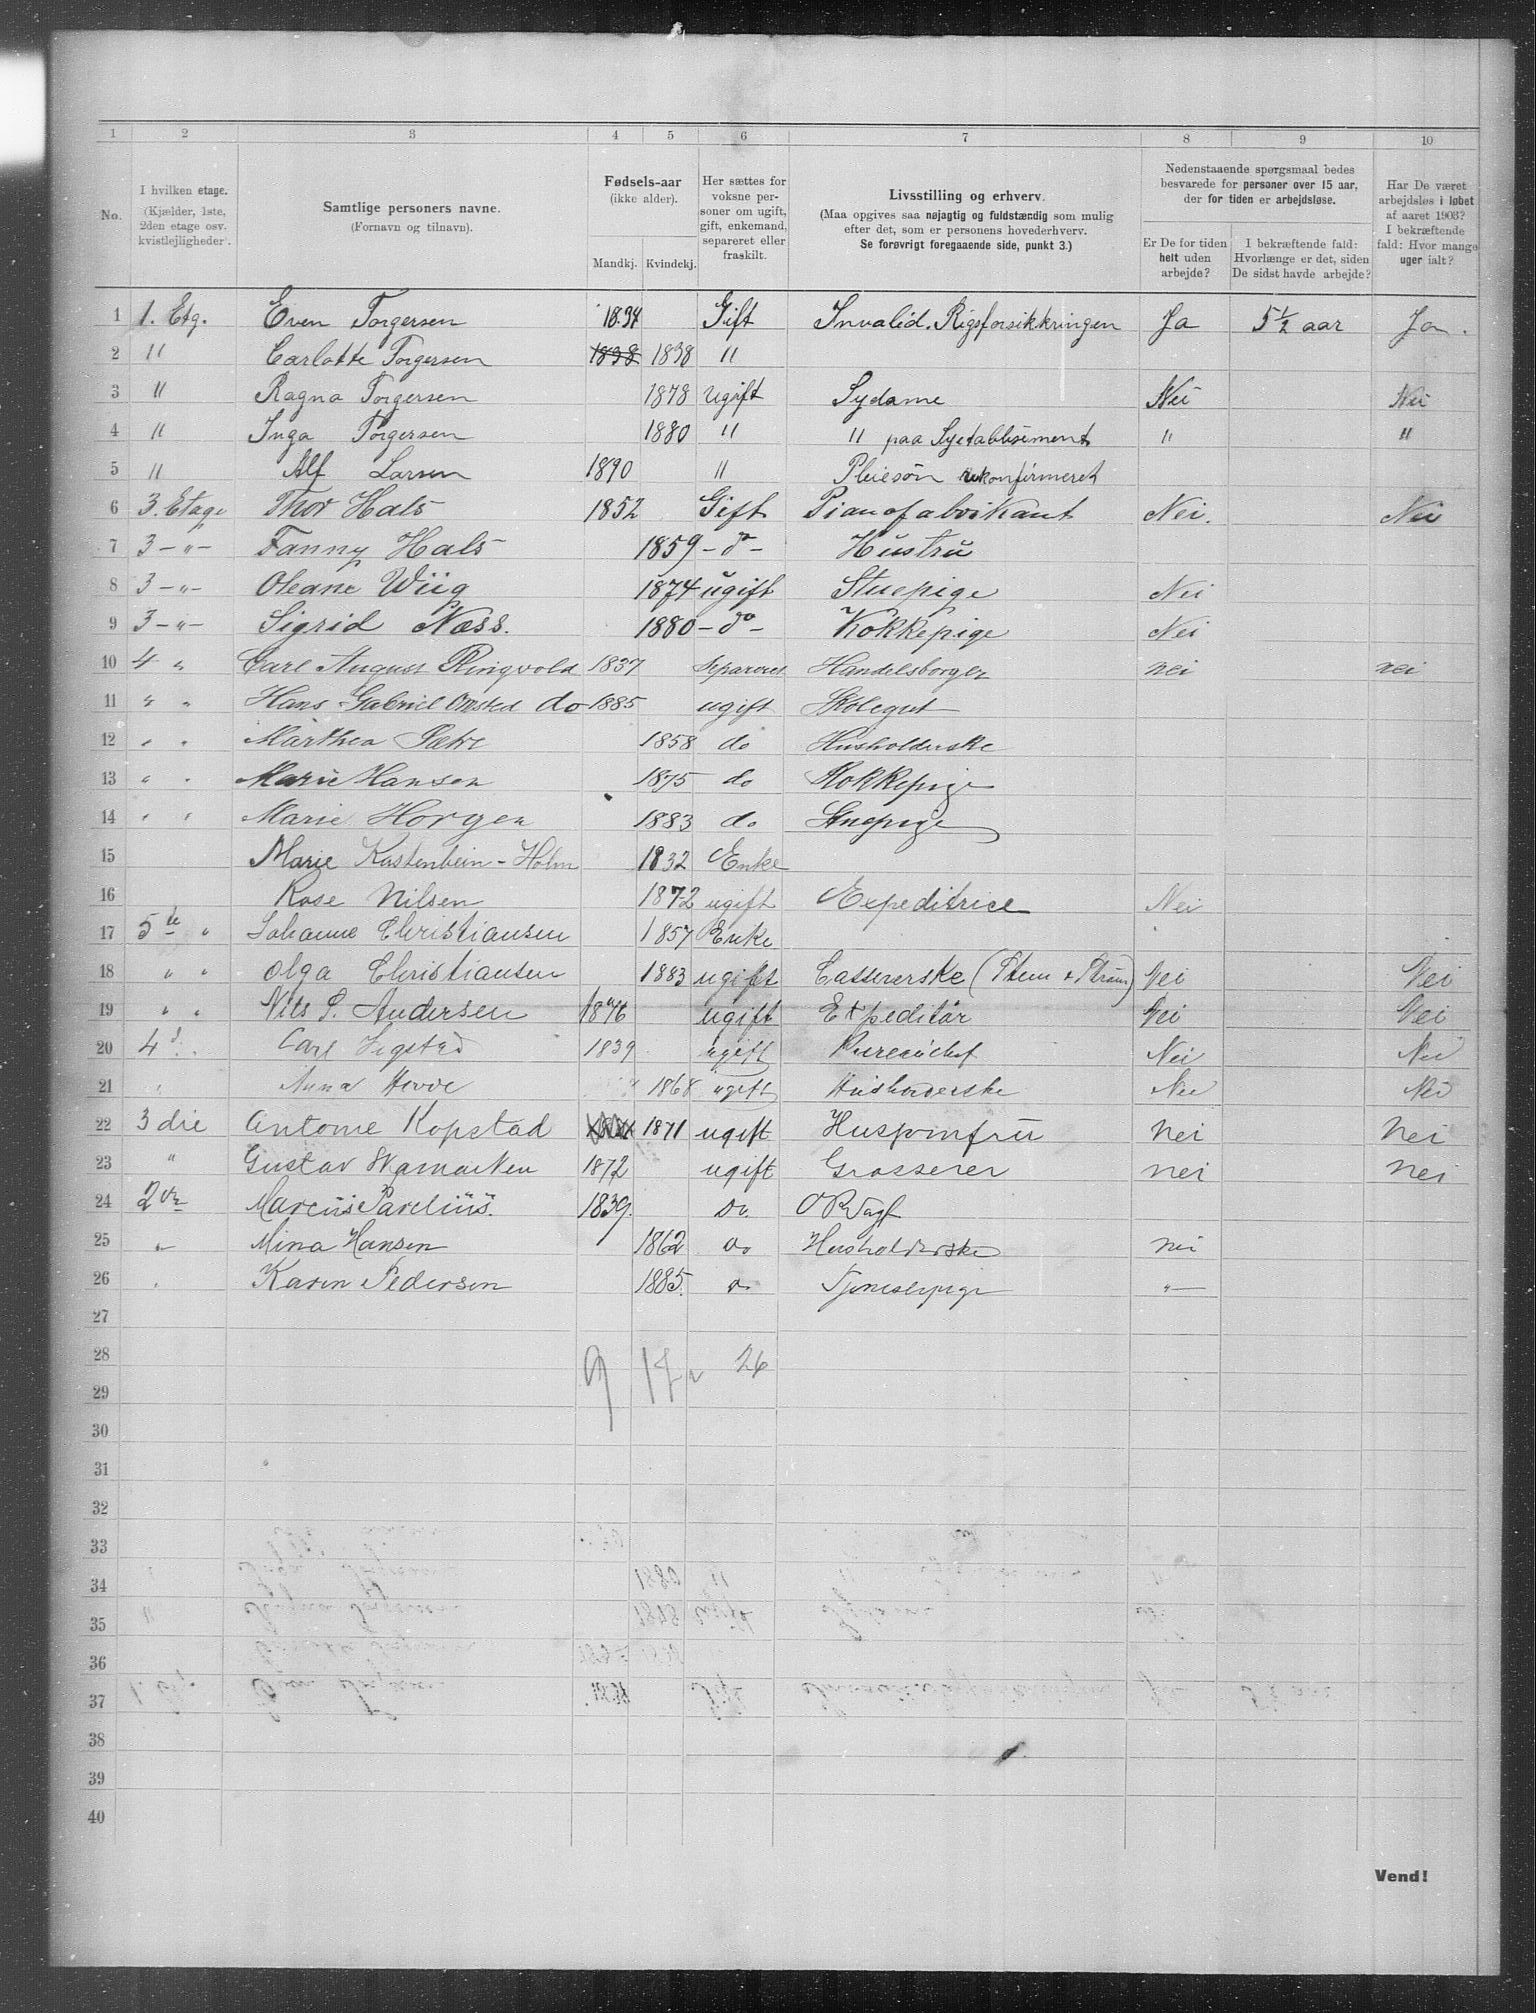 1 2 3 4 5 6 7 8 9 10
No.
I hvilken etage.
(Kjælder, 1ste,
2den etage osv.
kvistlejligheder).
Samtlige personers navne.
(Fornavn og tilnavn).
Fødsels-aar
(ikke alder).
Mandkj. Kvindekj.
Her sættes for
voksne per-
soner om ugift,
gift, enkemand,
separeret eller
fraskilt.
Livsstilling og erhverv.
(Maa opgives saa nøjagtig og fuldstændig som mulig
efter det, som er personens hovederhverv.
Se forøvrigt foregaaende side, punkt 3.)
Nedenstaaende spørgsmaal bedes
besvarede for personer over 15 aar,
der for tiden er arbejdsløse.
Er De for tiden
helt uden
arbejde?
I bekræftende fald:
Hvorlænge er det, siden
De sidst havde arbejde?
Har De været
arbejdsløs i løbet
af aaret 1903?
I bekræftende
fald: Hvor mange
uger ialt?
1 1. Etg. Even Torgersen 1834 Gift Invalid. Rigsforsikkringen Ja 5½ aar Ja.
2 " Carlotte Torgersen 1838 1838 "
3 " Ragna Torgersen 1878 ugift Sydame Nei Nei
4 " Inga Torgersen 1880 " " paa Syetablisement " "
5 " Alf Larsen 1890 " Pleiesøn ukonfirmeret
6 3. Etage Thor Hals 1852 Gift Pianofabrikant Nei. Nei
7 3 - " - Fanny Hals 1859 - do - Hustru
8 3 - " - Oleane Wiig 1874 ugift Stuepige Nei
9 3 - " - Sigrid Næss. 1880 - do - Kokkepige Nei
10 4 " Carl August Ringvold 1837 separeret Handelsborger nei nei
11 " " Hans Gabriel Onsted do 1885 ugift Skolegut
12 " " Marthea Sætre 1858 do Husholderske
13 " " Marie Hansen 1875 do Kokkepige
14 " " Marie Horgen 1883 do Stuepige
15 Marie Kastenbein-Holm 1832 Enke
16 Rose Nilsen 1872 ugift Expeditrice Nei
17 5te " Johanne Christiansen 1857 Enke
18 " " Olga Christiansen 1883 ugift Cassererske (Steen & Strøm) Nei Nei
19 " " Nils S. Andersen 1876 ugift Expeditør Nei Nei
20 4d " Carl Sigstad 1839 ugift Bureauchef Nei Nei
21 " Anna Hovve 1868 ugift Husholderske Nei Nei
22 3die Antonie Kopstad 1871 ugift Huspomfru Nei Nei
23 " Gustav Wamarken 1872 ugift Grosserer nei nei
24 2den Marcus Parelius. 1839. do. OR Sagf
25 " Mina Hansen 1862 do Husholderske nei
26 " Karen Pedersen 1885. do Tjenestepige - " -
27
28 9 17 26
29
30
31
32
33
34
35
36
37
38
39
40
Vend!